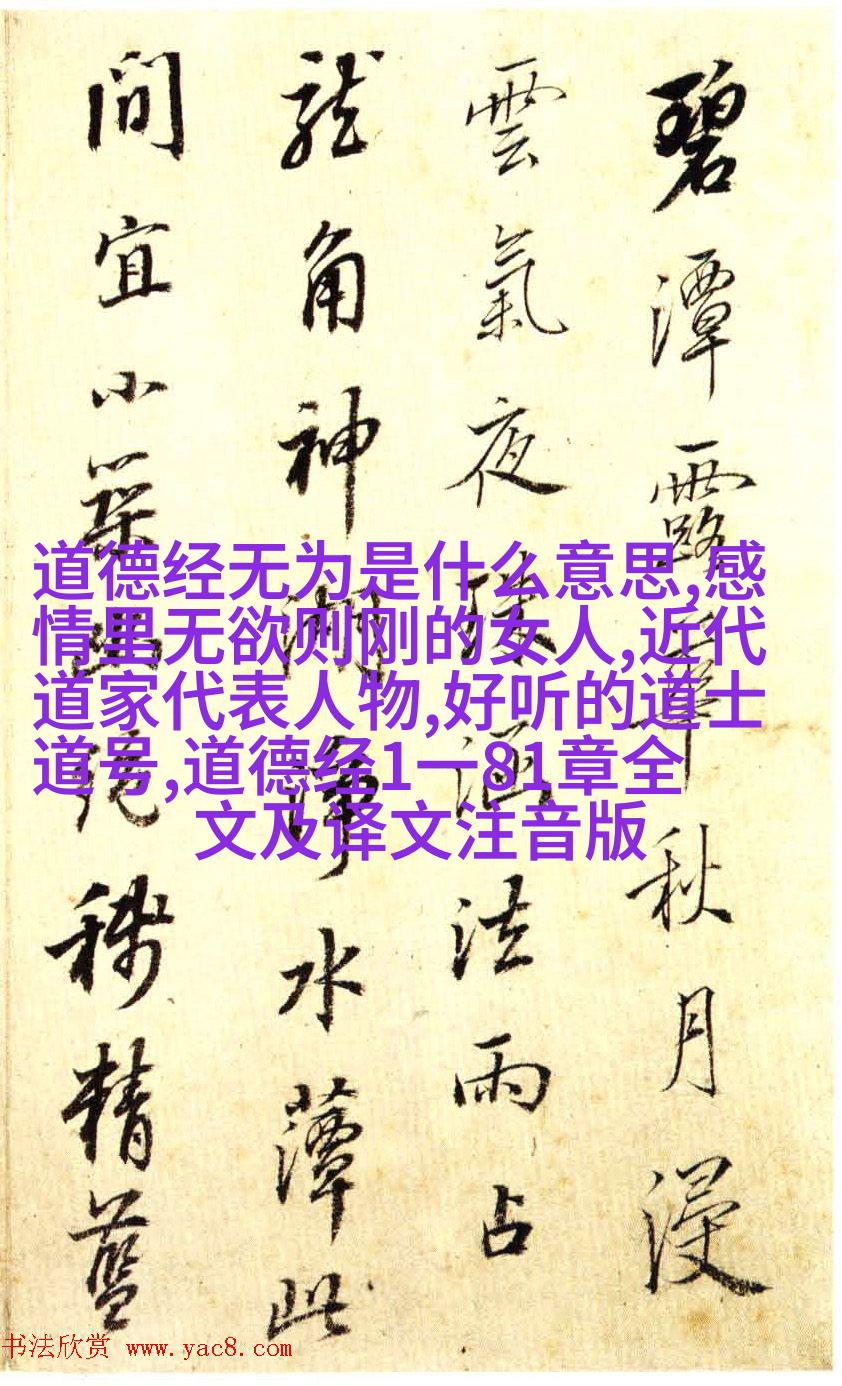 碧潭露華秋月浸
雲氣夜涵法雨占
龍角神湖淨水藫此
間宜小築幽境稱精藍
道德经无为是什么意思,感
情里无欲则刚的女人,近代
道家代表人物,好听的道士
道号,道德经1一81章全
文及译文注音版
书法欣赏 www.yac8.com